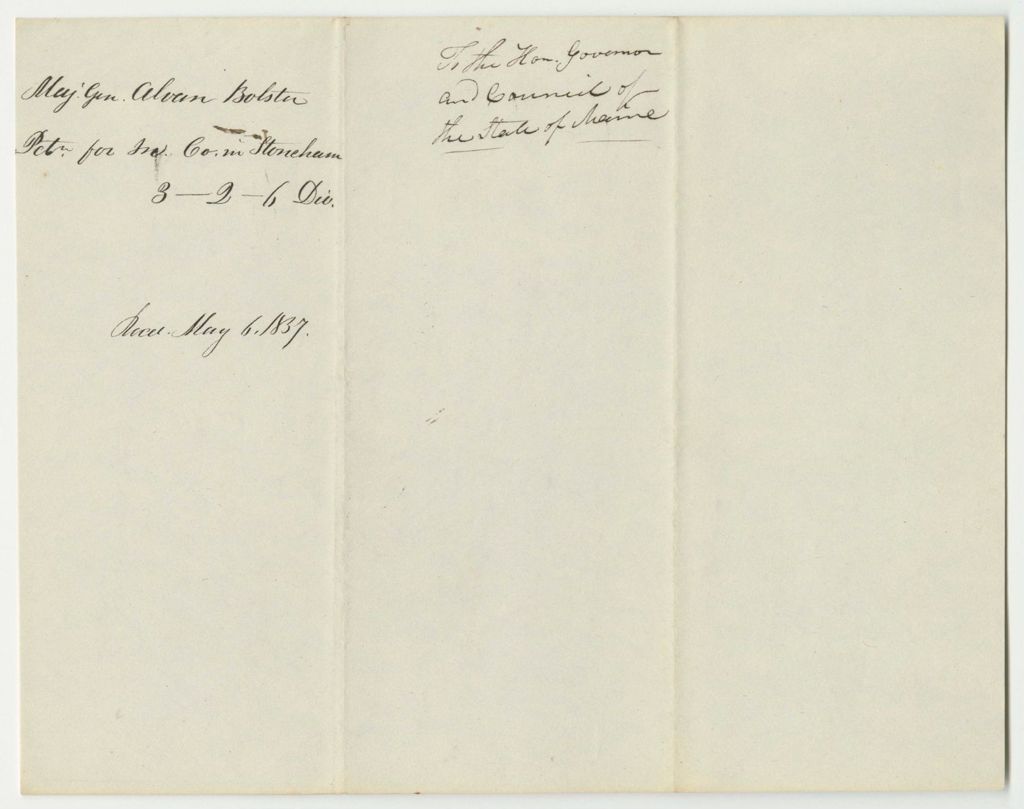 Maj. Gen. Alvan Bolster
Petn. for Co. in Stoneham
3 — 2 — 6 Div.
Recd. May 6, 1837.
To the Hon. Governor
and Council of
the State of Maine